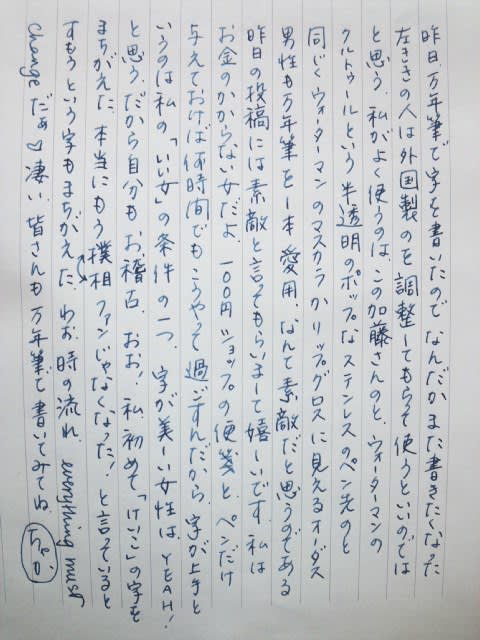 昨日、万年筆で字を書いたのでなんだかまた書きたくなった
左ききの人は外国製のを調整してもらって使うといいのでは
と思う。私がよく使うのは、この加藤さんのと、ウォーターマンの
クルトゥールという半透明のポップなステンレスのペン先のと
同じくウォーターマンのマスカラかリップグロスに見えるオーダス
男性も万年筆を1本愛用、なんて素敵だと思うのである
昨日の投稿には素敵と言ってもらいまして嬉しいです。私は
お金のかからない女だよ、100円ショップの便箋とペンだけ
与えておけば何時間でもこうやって過ごすんだから、字が上手と
いうのは私の「いい女」の条件の一つ、字が美しい女性は、YEAH!
と思う。だから自分もお稽古、おお!私、初めて「けいこ」の字を
まちがえた、本当にもう撲相ファンじゃなくなった!と言っていると
すもうという字もまちがえた わお、時の流れ、everything must
changeだぁ♡凄い、皆さんも万年筆で書いてみてね。